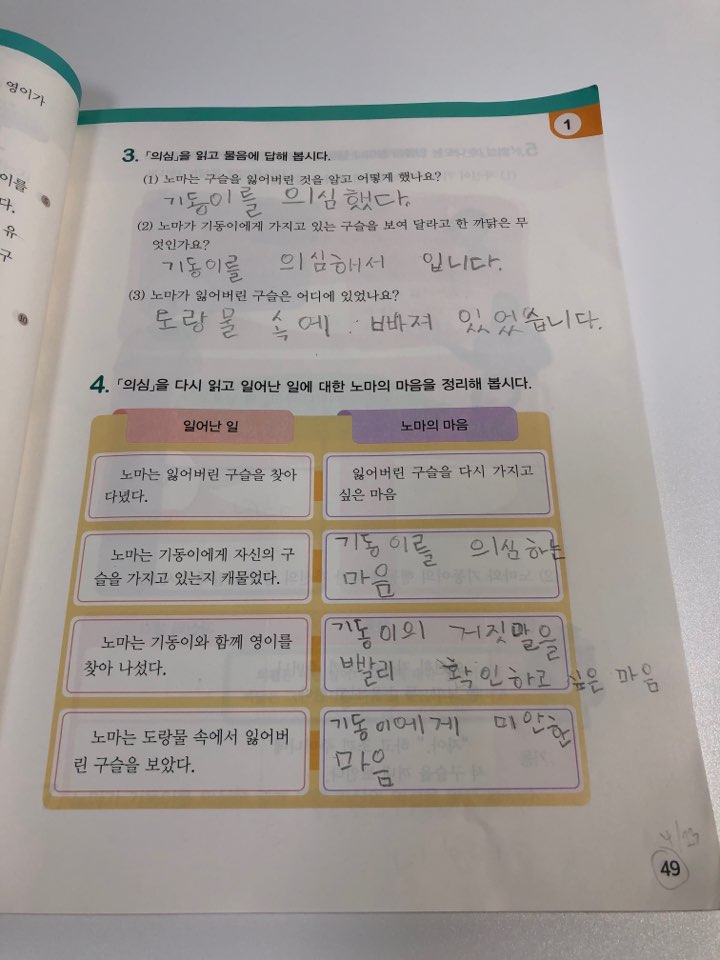 영이가
이를
다.
유
구
5
10
1
3. 「의심」을 읽고 물음에 답해 봅시다.
(1) 노마는 구슬을 잃어버린 것을 알고 어떻게 했나요?
기동이를 의심했다.
(2) 노마가 기동이에게 가지고 있는 구슬을 보여 달라고 한 까닭은 무
엇인가요?
기동이를 의심해서 입니다.
(3) 노마가 잃어버린 구슬은 어디에 있었나요?
도랑물 속에 빠져 있었습니다.
4. 「의심」을 다시 읽고 일어난 일에 대한 노마의 마음을 정리해 봅시다.
일어난 일
노마의 마음
노마는 잃어버린 구슬을 찾아
다녔다.
잃어버린 구슬을 다시 가지고
싶은 마음
노마는 기동이에게 자신의 구
슬을 가지고 있는지 캐물었다.
기동이를 의심하는
마음
노마는 기동이와 함께 영이를
찾아 나섰다.
기동이의 거짓말을
바발리 확인하고 싶은 마음
노마는 도랑물 속에서 잃어버
린 구슬을 보았다.
기동이에게 미안한
마음
49